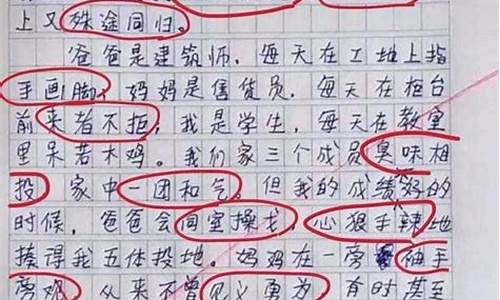 上又殊途同归。
爸爸是建筑师，每天在工地上指
手画脚，妈妈是售货员，每天在柜台
前来者不拒，我是学生，每天在教室
里呆若木鸡。我们家三个成员臭味相
投 家中一团和气。但我的成绩好的
时候，爸爸会同室操戈，心狠手辣地
揍得我五体投地。妈妈在一旁袖手
旁观 从来不曾见义勇为 有时甚至